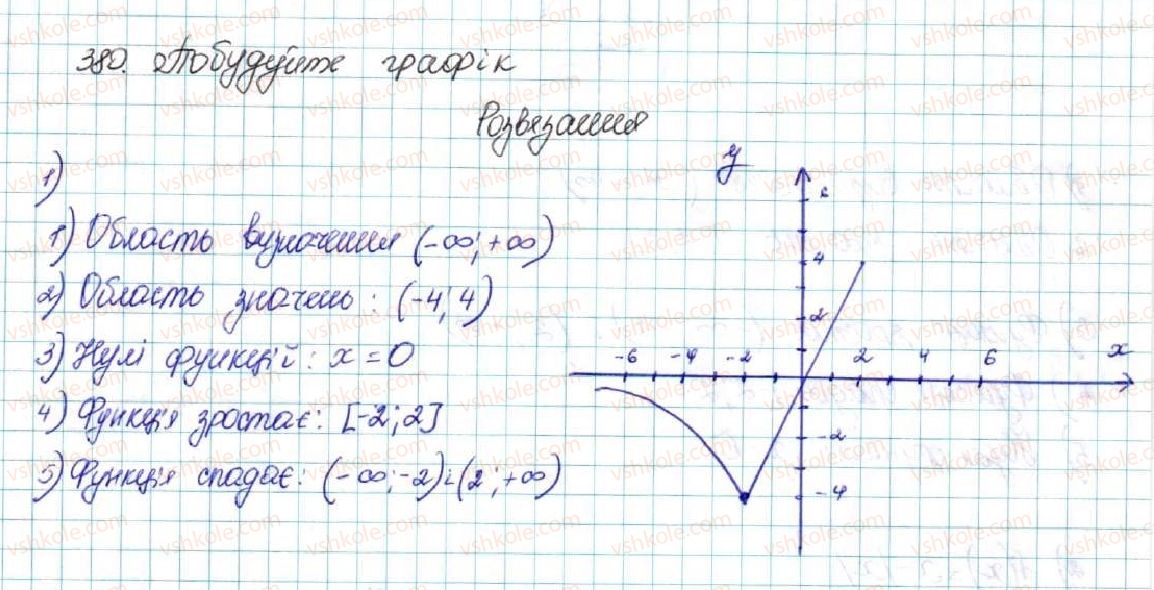 380. Побудуйте графік
Розвязання
1)
1) Область визначення (-∞; +∞)
2) Область значень: (-4; 4)
3) Нулі функцій: x = 0
4) Функція зростає: [-2; 2]
5) Функція спадає: (-∞; -2) і (2; +∞)
y
6
4
2
-6 -4 -2 2 4 6 x
-2
-4
vshkole.com